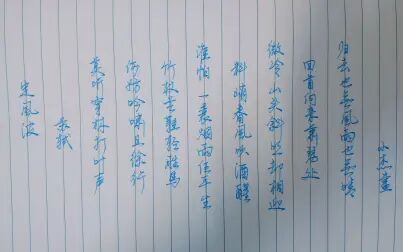 定风波
苏轼
莫听穿林打叶声
何妨吟啸且徐行
竹杖芒鞋轻胜马
谁怕一蓑烟雨任平生
料峭春风吹酒醒
微冷山头斜照却相迎
回首向来萧瑟处
归去也无风雨也无晴